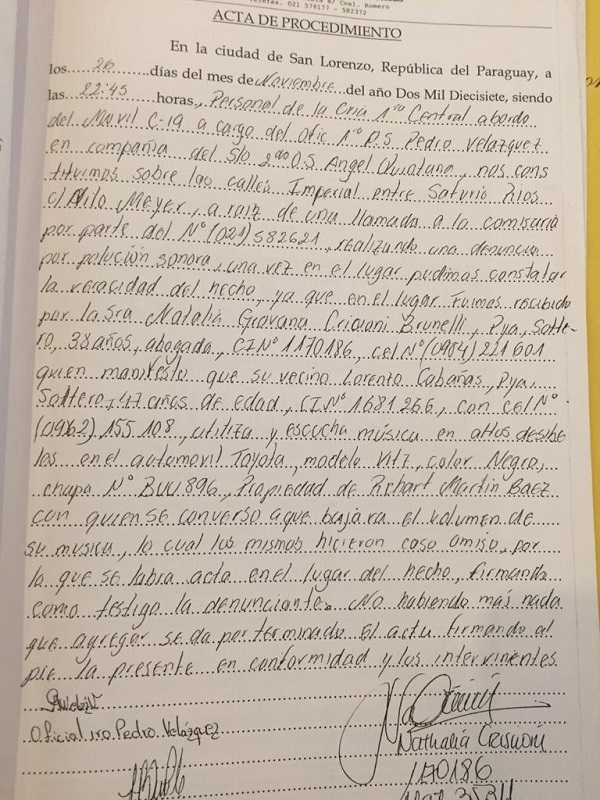 Cnel. Romero
Telefax. 021 576177 - 582372
ACTA DE PROCEDIMIENTO
En la ciudad de San Lorenzo, República del Paraguay, a
los 26 días del mes de Noviembre del año Dos Mil Diecisiete, siendo
las 22:45 horas, Personal de la Cria 1ra Central abordo
del Movil C-19 a cargo del Ofic 1ro P.S. Pedro Velazquez
en compañia del S/o 2do O.S Angel Quintana, nos cons
tituimos sobre las calles Imperial entre Saturio Rios
c/ Nilo Meyer, a raiz de una llamada a la comisaria
por parte del Nº (021) 582621, realizando una denuncia
por polución sonora, una vez en el lugar pudimos constatar
la veracidad del hecho, ya que en el lugar Fuimos recibido
por la Sra Natalia Giovana Crioani Brunelli, Pya, Solte-
ro, 38 años, abogada, CI Nº 1170186, cel Nº (0984) 221 601
quien manifesto que su vecino Lorento Cabañas, Pya,
Soltero, 47 años de edad, CI Nº 1681266, con cel Nº
(0962) 155 108, utiliza y escucha música en altos desibe
les en el automovil Toyota, modelo Vitz, color Negro,
chapa Nº BUU 896, Propiedad de Richart Martin Baez
con quien se converso a que bajara el volumen de
su musica, lo cual los mismos hicieron caso omiso, por
lo que se labra acta en el lugar del hecho, firmando
como testigo la denunciante. No habiendo más nada
que agregar se da por terminado el acto firmando al
pie la presente en conformidad y los intervinentes.
Oficial 1ro Pedro Velázquez
Nathalia
1170186